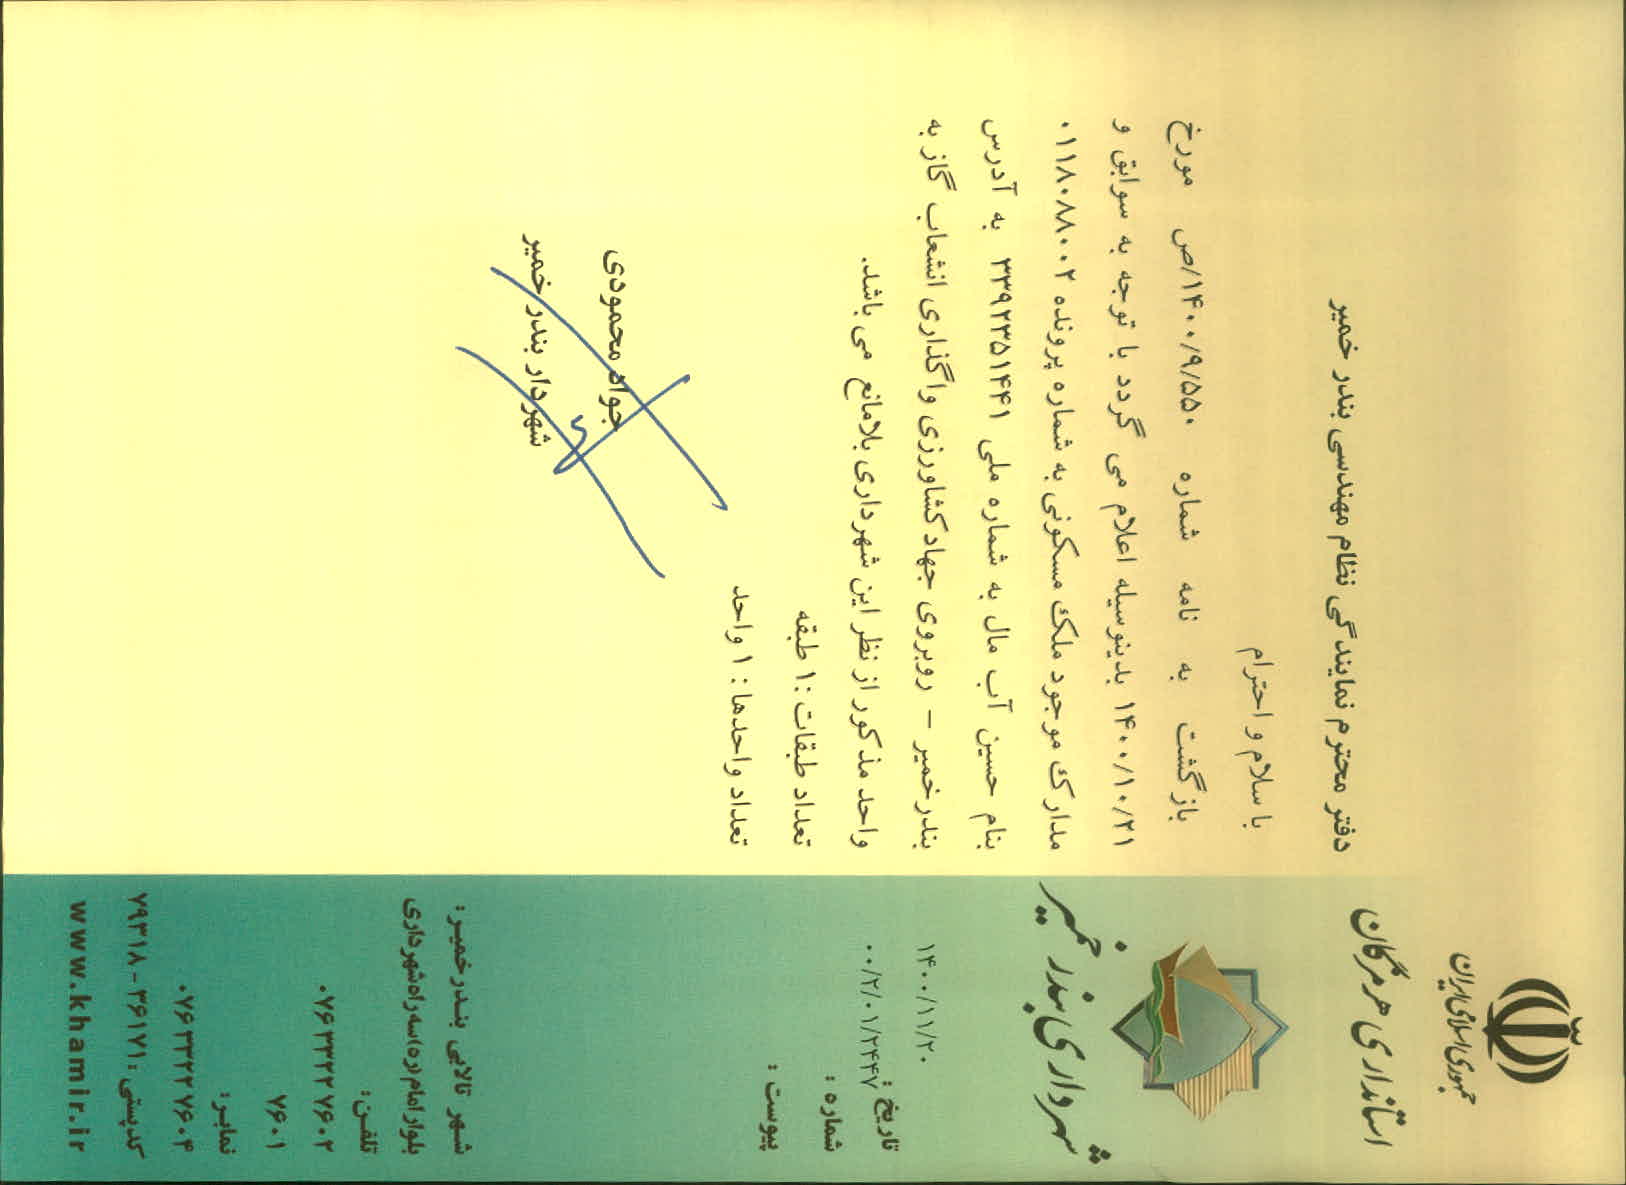 جمهوری اسلامی ایران
استانداری هرمزگان
شهرداری بندر خمیر
۱۴۰۰/۱۱/۲۰
تاریخ :
۰۰/۲/۰۱/۲۴۴۷
شماره :
پیوست :
دفتر محترم نمایندگی نظام مهندسی بندر خمیر
با سلام و احترام
بازگشت به نامه شماره ۱۴۰۰/۹/۵۵۰/ص مورخ
۱۴۰۰/۱۰/۲۱ بدینوسیله اعلام می گردد با توجه به سوابق و
مدارک موجود ملک مسکونی به شماره پرونده ۰۱۱۸۰۸۸۰۰۲
بنام حسین آب مال به شماره ملی ۳۳۹۲۳۵۱۴۴۱ به آدرس
بندرخمیر – روبروی جهاد کشاورزی واگذاری انشعاب گاز به
واحد مذکور از نظر این شهرداری بلامانع می باشد.
تعداد طبقات :۱ طبقه
تعداد واحدها : ۱ واحد
جواد محمودی
شهردار بندر خمیر
شهر تالابی بندرخمیر :
بلوار امام (ره) سه راه شهرداری
تلفن :
۰۷۶۳۳۲۲۷۶۰۲
۷۶۰۱
نمابر :
۰۷۶۳۳۲۲۷۶۰۴
کد پستی : ۳۶۱۷۱ - ۷۹۳۱۸
www.khamir.ir